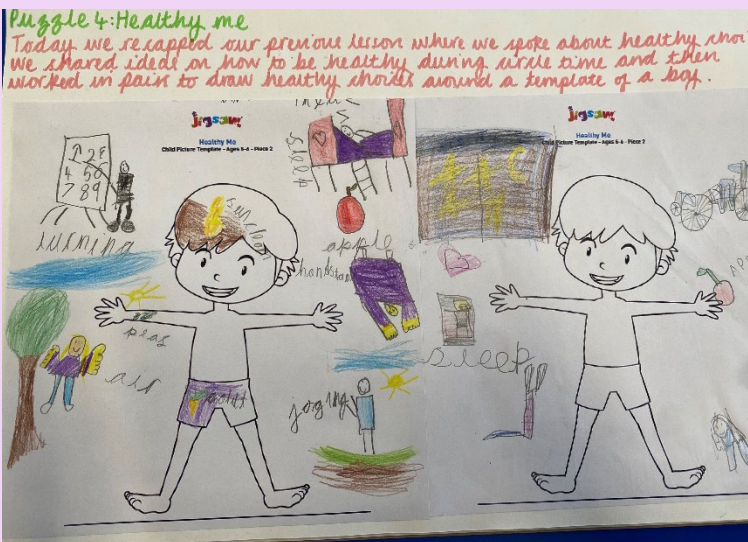 Puzzle 4: Healthy me
Today we recapped our previous lesson where we spoke about healthy choi
we shared ideas on how to be healthy during circle time and then
worked in pairs to draw healthy choices around a template of a boy.
Jigsaw
Healthy Me
Child Picture Template - Ages 5-6 - Piece 2
1 2
4 5 6
7 8 9
lurning
sleep
apple
peas
air
joging
Jigsaw
Healthy Me
Child Picture Template - Ages 5-6 - Piece 2
sleep